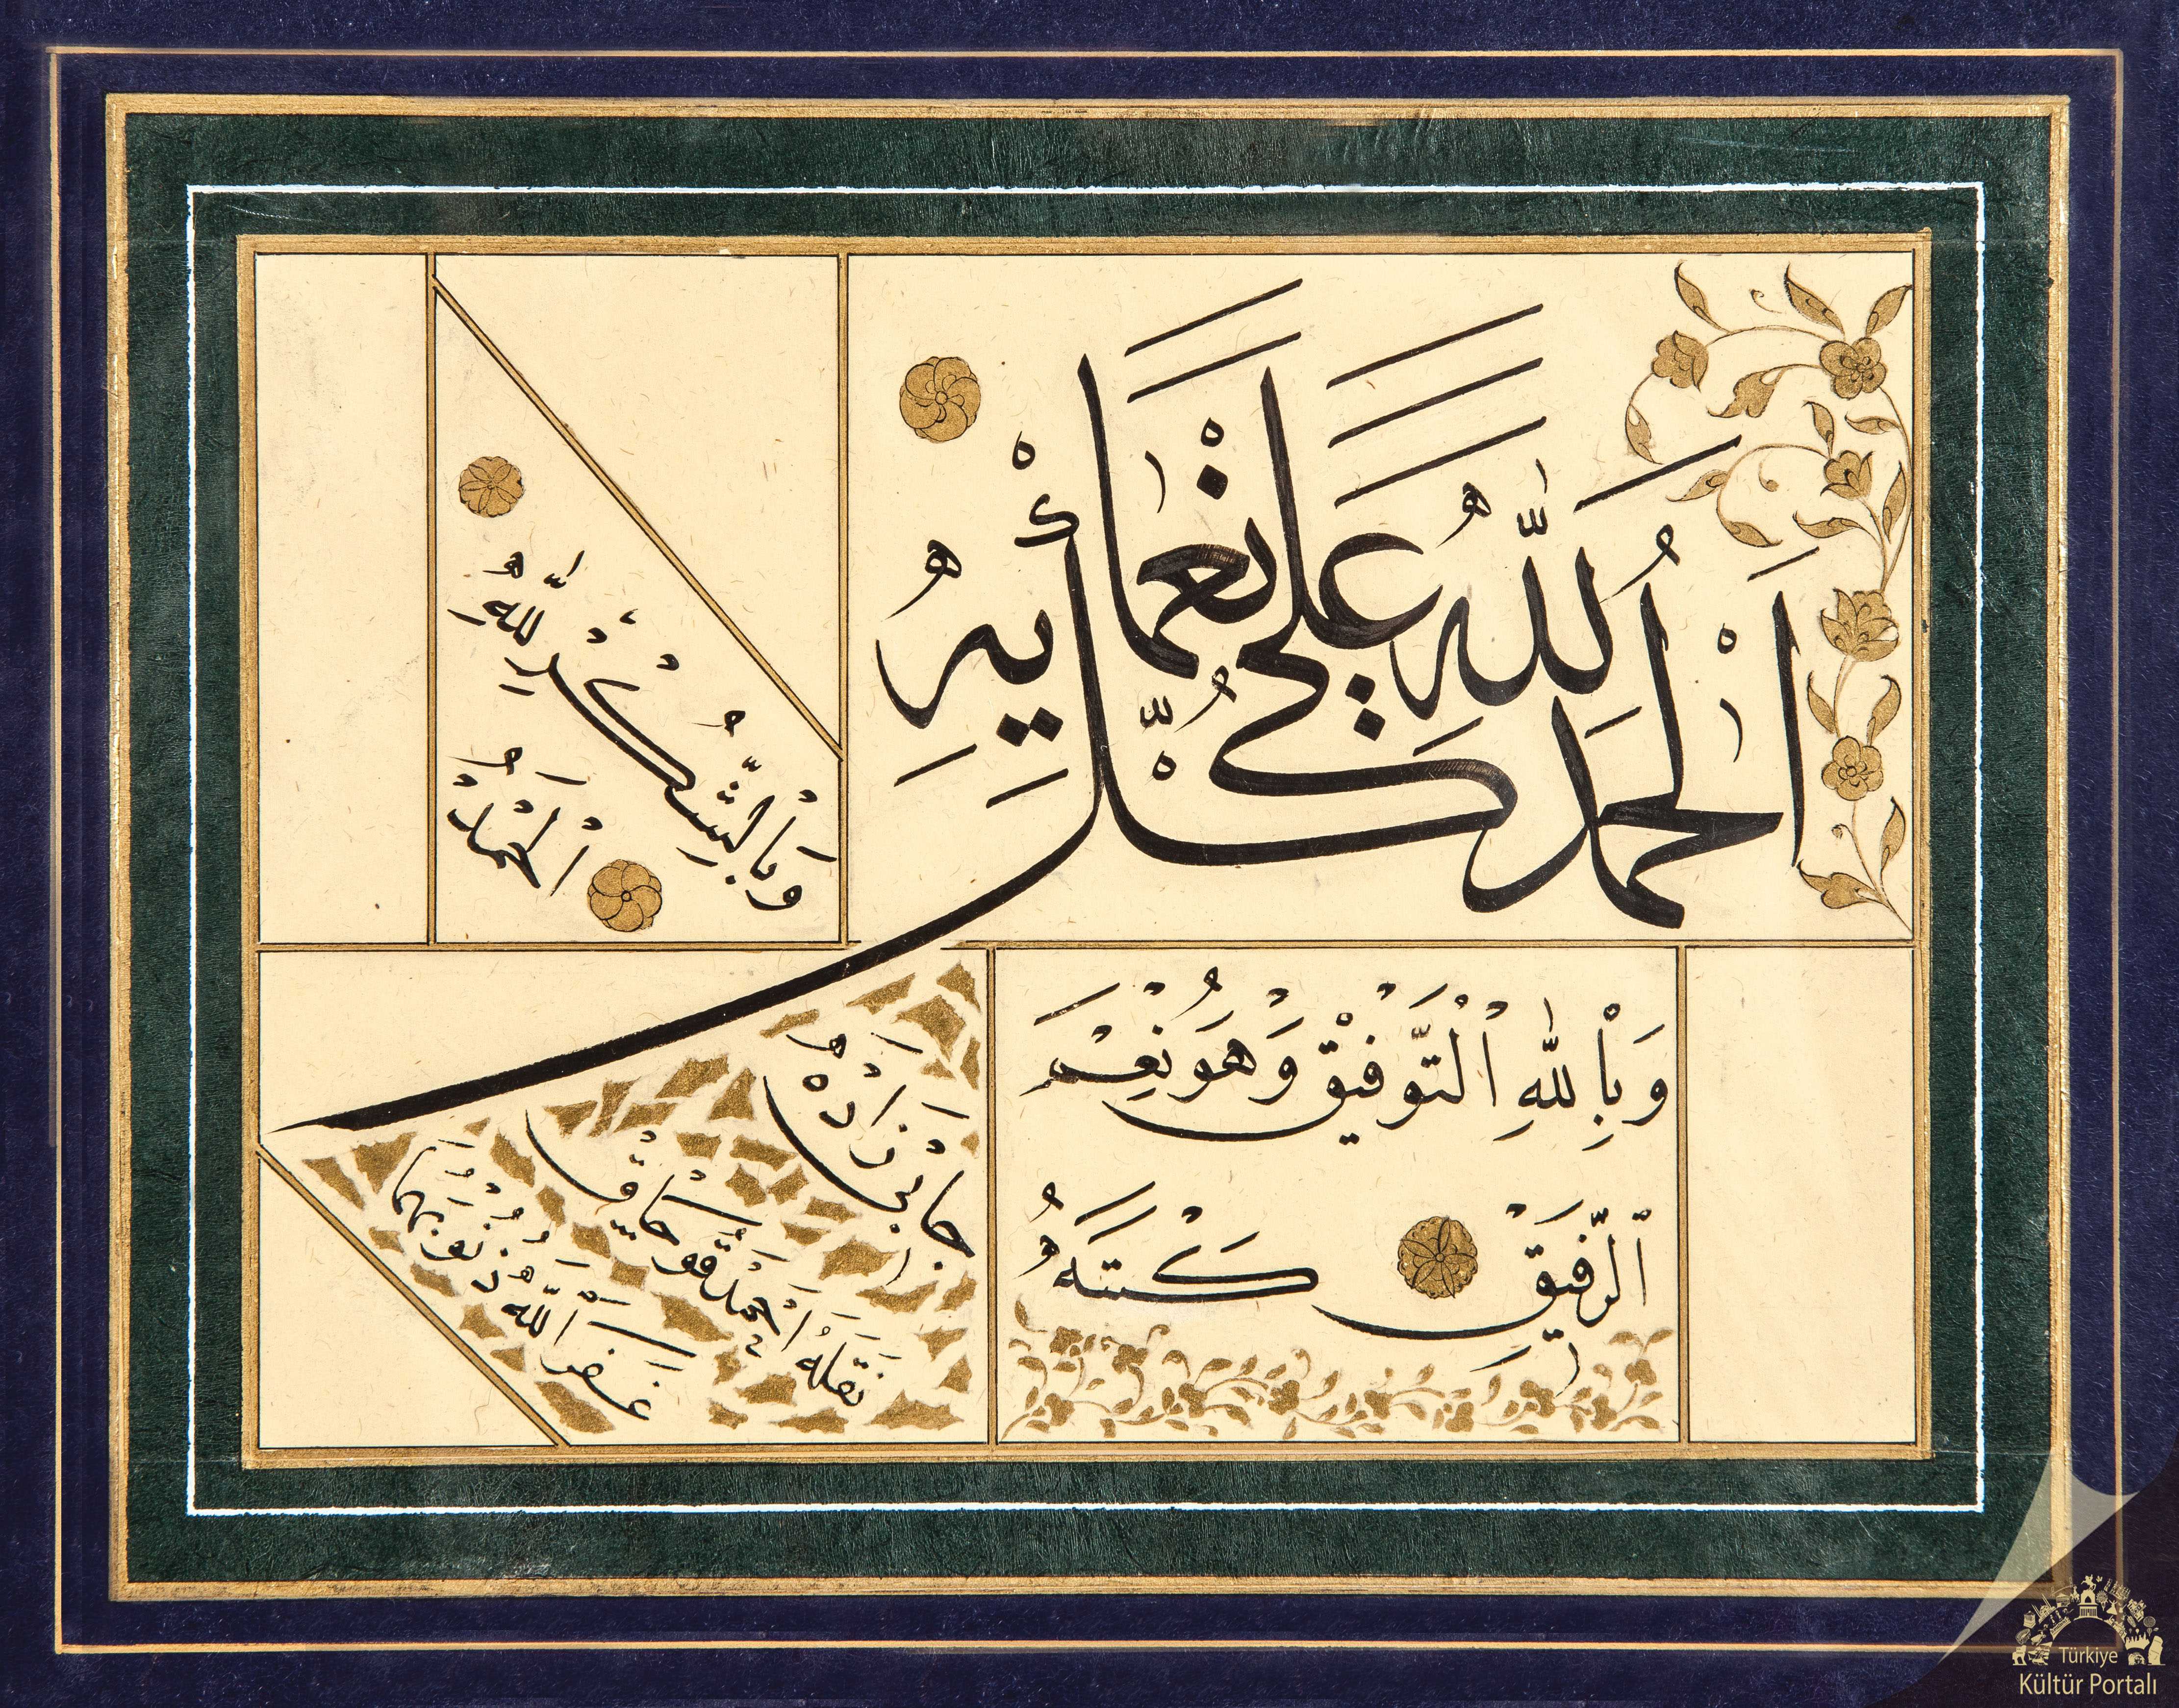 اَلْحَمْدُ لِلّٰهِ عَلٰى كُلِّ نَعْمَائِهِ
وَبِالشُّكْرِ لِلّٰهِ
اَلْحَمْدُ
وَبِاللّٰهِ التَّوْفِيْقُ وَهُوَ نِعْمَ
الرَّفِيْقِ كَتَبَهُ
جابى زاده
نقله احمد قوجايق
غفر الله ذنوبهما
Türkiye
Kültür Portalı